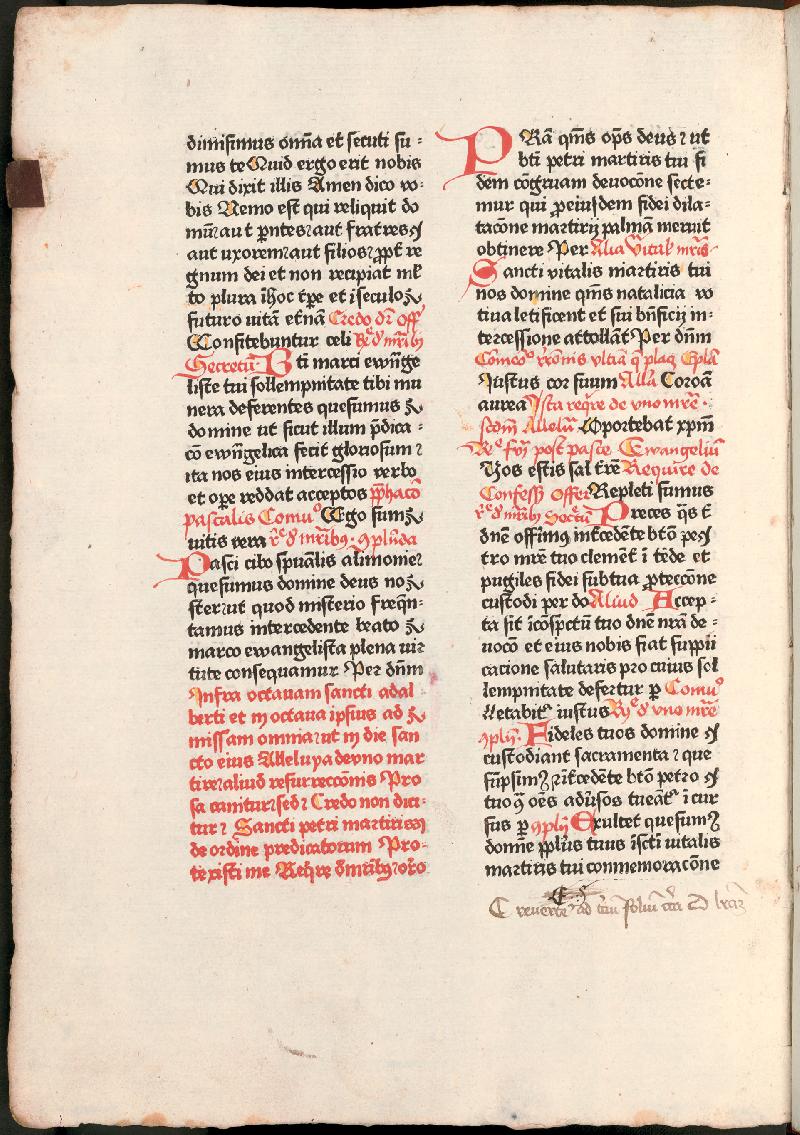 dimisimus om̄a et secuti su⸗
mus te Quid ergo erit nobis
Qui dixit illis Amen dico vo⸗
bis Nemo est qui reliquit do
mū aut p̄ntes aut fratres
aut uxorem aut filios ꝓpt̄ re
gnum dei et non recipiat ml̄
to plura ī hoc tꝑe et ī seculo
futuro uitā et̄nā Credo dr̄ off̄
Confitebuntur celi Re d mr̄ibꝫ
Secretū Bti marci ewn̄ge
liste tui sollempnitate tibi mu
nera deferentes quesumus
domine ut sicut illum p̄dica⸗
cō ewn̄gelica fecit gloriosum
ita nos eius intercessio verbo
et oꝑe reddat acceptos p̄facō
pascalis Comūo Ego sum
uitis vera re d mr̄ibus ꝯplēda
Pasci cibo spūalis alimonie
quesumus domine deus no
ster ut quod misterio freqn̄⸗
tamus intercedente beato
marco ewangelista plena uir
tute consequamur Per dn̄m
Infra octauam sancti adal
berti et in octaua ipsius ad
missam omnia ut in die san
cto eius Alleluya de vno mar
tire aliud resurreccōnis Pro
sa canitur sed Credo non dici⸗
tur Sancti petri martiris
de ordine predicatorum Pro⸗
texisti me Reqre d mr̄ibꝫ oro
PRā qm̄s op̄s deus ut
bti petri martiris tui fi
dem cōgruam deuocōne secte⸗
mur qui ꝓ eiusdem fidei dila⸗
tacōne martirij palmā meruit
obtinere Per Alia Vitalis mr̄is
Sancti vitalis martiris tui
nos domine qm̄s natalicia vo
tiua letificent et sui bn̄ficij in⸗
tercessione attollāt Per dn̄m
Justus cor suum Alla Coroā
aurea Ista reqre de vno mr̄e
sedm̄ Alleluia Oportebat xpm̄
Re post pasce Ewangeliū
Vos estis sal tr̄e Require de
Confess Offer Repleti sumus
re d mr̄ibꝫ Secrtū Preces qs t
dn̄e offimꝰ intcedēte btō pe
tro mr̄e tuo clemēt ī tēde et
pugiles fidei sub tua ꝓteccōne
custodi per do Aliud Accep⸗
ta sit ī cōspctū tuo dn̄e nr̄a de⸗
uocō et eius nobis fiat suppli
cacione salutaris pro cuius sol
lempnitate defertur p Comūo
Letabit iustus Re d vno mr̄e
ꝯplū Fideles tuos domine
custodiant sacramenta que
sūpsimꝰ et intcedēte btō petro
tuo oēs adūsos tueāt ī cur
sus p ꝯplū Exultet quesumꝰ
domīe ppl̄us tuus ī scti vitalis
martiris tui conmemoracōne
reuerte ad folium